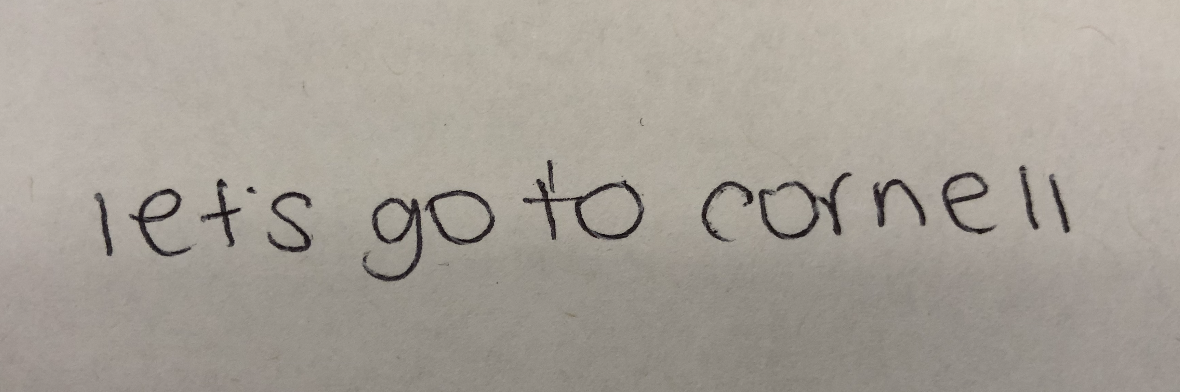 let's go to cornell